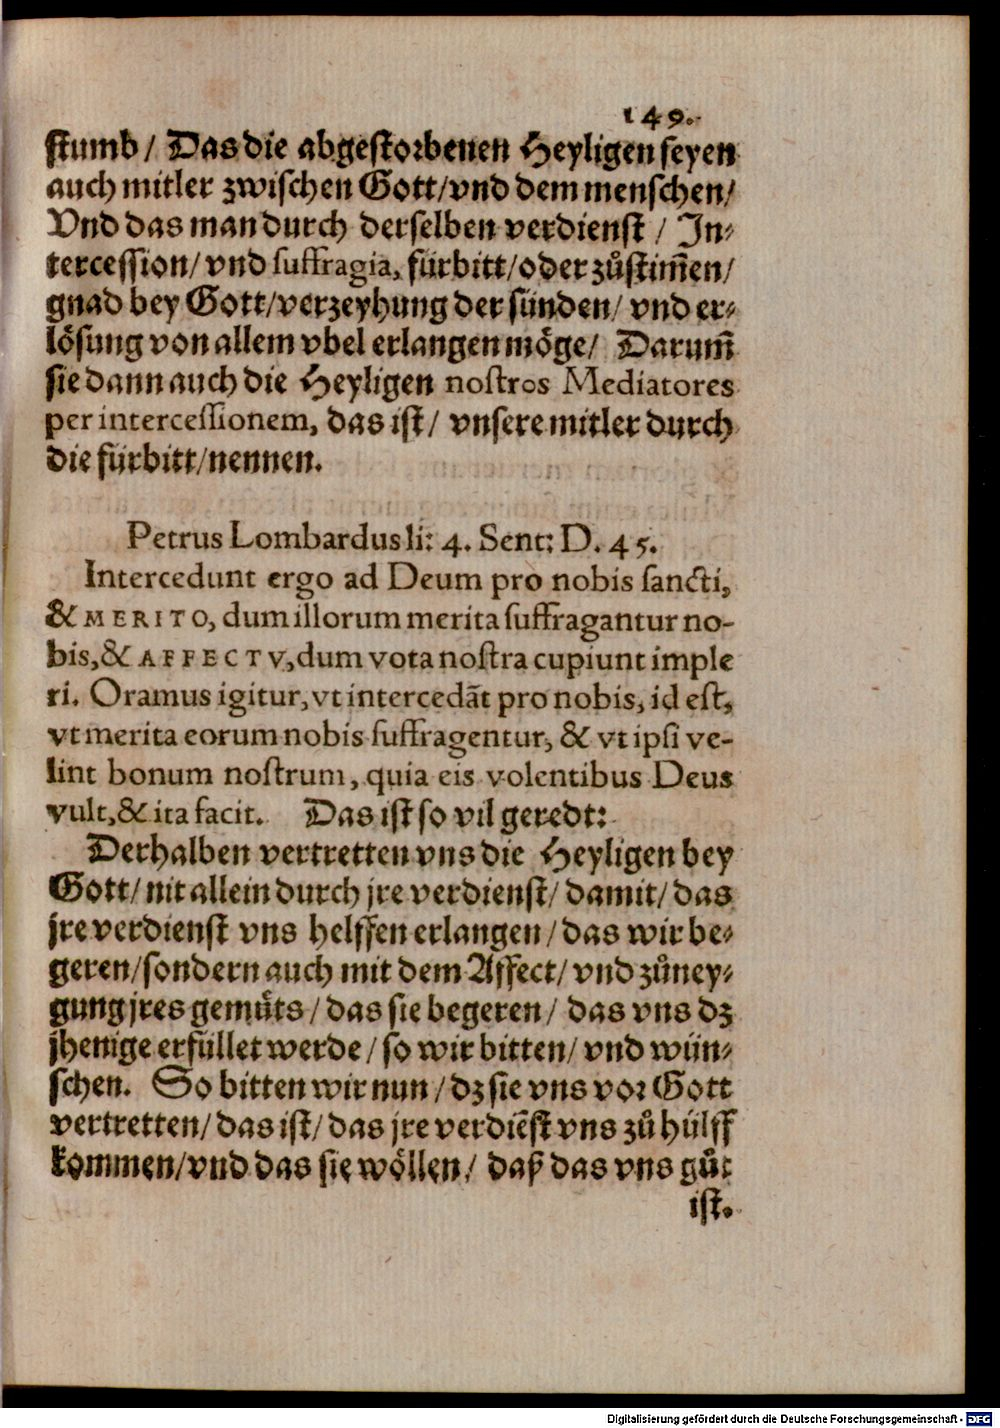 149.
stumb / Das die abgestorbenen Heyligen seyen
auch mitler zwischen Gott/vnd dem menschen/
Vnd das man durch derselben verdienst / In-
tercession/ vnd suffragia, fürbitt/oder zůstim̃en/
gnad bey Gott/verzeyhung der sünden/ vnd er-
lösung von allem vbel erlangen möge/ Darum̃
sie dann auch die Heyligen nostros Mediatores
per intercessionem, das ist/ vnsere mitler durch
die fürbitt/nennen.
Petrus Lombardus li: 4. Sent: D. 45.
Intercedunt ergo ad Deum pro nobis sancti,
& MERITO, dum illorum merita suffragantur no-
bis, & AFFECTV, dum vota nostra cupiunt imple
ri. Oramus igitur, vt intercedãt pro nobis, id est,
vt merita eorum nobis suffragentur, & vt ipsi ve-
lint bonum nostrum, quia eis volentibus Deus
vult, & ita facit. Das ist so vil geredt:
Derhalben vertretten vns die Heyligen bey
Gott/ nit allein durch jre verdienst/ damit/ das
jre verdienst vns helffen erlangen / das wir be-
geren/sondern auch mit dem Affect/ vnd zůney-
gung jres gemüts / das sie begeren / das vns dz
jhenige erfüllet werde / so wir bitten/ vnd wün-
schen. So bitten wir nun / dz sie vns vor Gott
vertretten/ das ist/ das jre verdiẽst vns zů hülff
kommen/vnd das sie wöllen/ daß das vns gůt
ist.
Digitalisierung gefördert durch die Deutsche Forschungsgemeinschaft - DFG